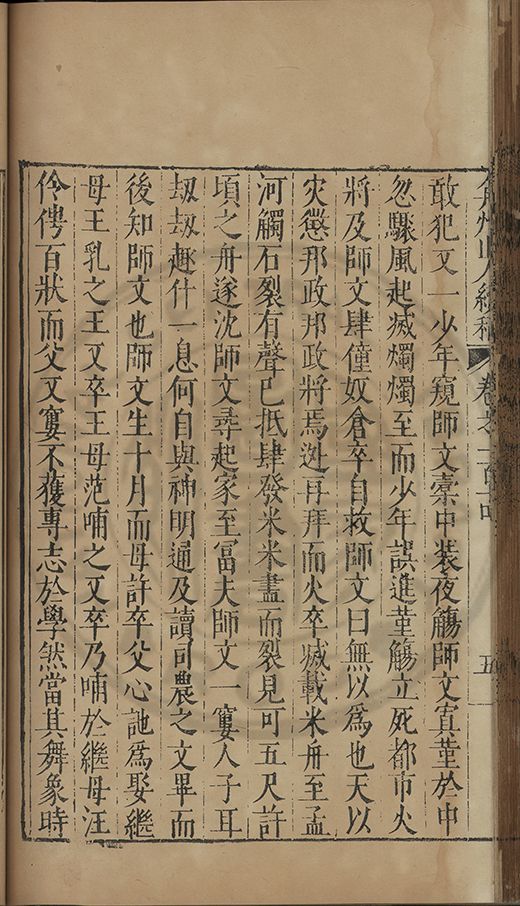 弇州山人續稿 卷之一百十四 五
敢犯又一少年窺師文橐中裝夜觴師文寘堇於中
忽驟風起滅燭燭至而少年誤進堇觴立死都市火
將及師文肆僮奴倉卒自救師文曰無以為也天以
灾懲邦政邦政將焉逃再拜而火卒滅載米舟至孟
河觸石裂有聲已抵肆發米米盡而裂見可五尺許
頃之舟遂沈師文尋起家至冨夫師文一窶人子耳
刼刼趣什一息何自與神明通及讀司農之文畢而
後知師文也師文生十月而母許卒父心訑為娶繼
母王乳之王又卒王母范哺之又卒乃哺於繼母汪
伶俜百狀而父又窶不獲專志於學然當其舞象時